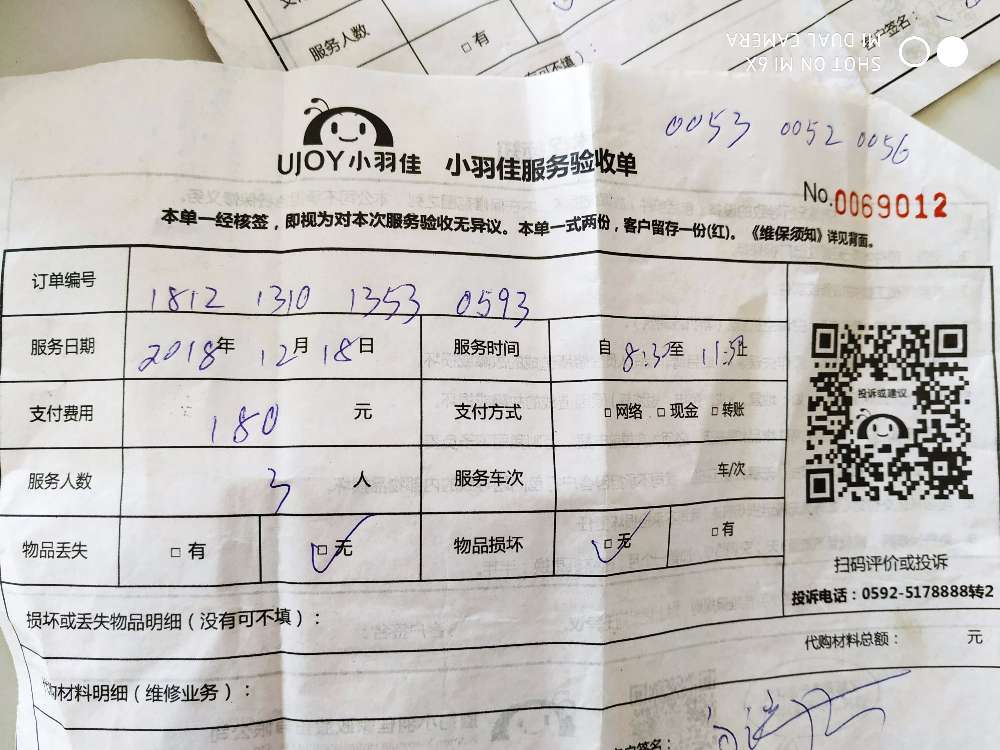 服务人数
□有
客户签名：
SHOT ON MI 6X
MI DUAL CAMERA
0053 0052 0056
UJOY小羽佳 小羽佳服务验收单
No.0069012
本单一经核签，即视为对本次服务验收无异议。本单一式两份，客户留存一份(红)。《维保须知》详见背面。
订单编号 1812 1310 1353 0593
服务日期 2018年 12月 18日 服务时间 自 8:30至 11:30止
支付费用 180 元 支付方式 □网络 □现金 □转账
投诉或建议
服务人数 3 人 服务车次 车/次
物品丢失 □有 □无 物品损坏 □无 □有
扫码评价或投诉
投诉电话：0592-5178888转2
损坏或丢失物品明细（没有可不填）：
代购材料总额： 元
购材料明细（维修业务）：
客户签名：